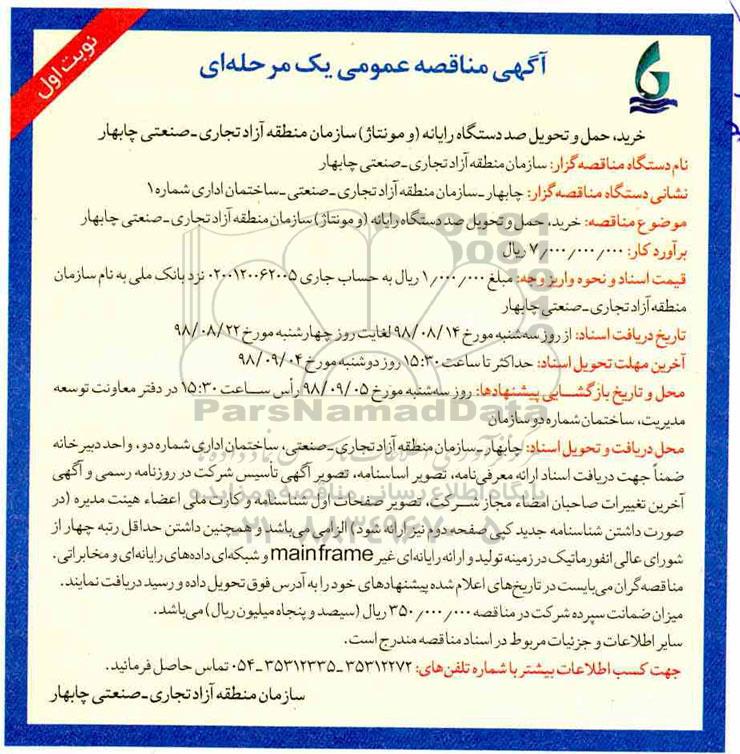 نوبت اول
آگهی مناقصه عمومی یک مرحله‌ای
خرید، حمل و تحویل صد دستگاه رایانه (و مونتاژ) سازمان منطقه آزاد تجاری ـ صنعتی چابهار
نام دستگاه مناقصه‌گزار: سازمان منطقه آزاد تجاری ـ صنعتی چابهار
نشانی دستگاه مناقصه‌گزار: چابهار ـ سازمان منطقه آزاد تجاری ـ صنعتی ـ ساختمان اداری شماره ۱
موضوع مناقصه: خرید، حمل و تحویل صد دستگاه رایانه (و مونتاژ) سازمان منطقه آزاد تجاری ـ صنعتی چابهار
برآورد کار: ۷٫۰۰۰٫۰۰۰٫۰۰۰ ریال
قیمت اسناد و نحوه واریز وجه: مبلغ ۱٫۰۰۰٫۰۰۰ ریال به حساب جاری ۰۲۰۰۱۲۰۰۶۲۰۰۵ نزد بانک ملی به نام سازمان
منطقه آزاد تجاری ـ صنعتی چابهار
تاریخ دریافت اسناد: از روز سه‌شنبه مورخ ۹۸/۰۸/۱۴ لغایت روز چهارشنبه مورخ ۹۸/۰۸/۲۲
آخرین مهلت تحویل اسناد: حداکثر تا ساعت ۱۵:۳۰ روز دوشنبه مورخ ۹۸/۰۹/۰۴
محل و تاریخ بازگشایی پیشنهادها: روز سه‌شنبه مورخ ۹۸/۰۹/۰۵ رأس ساعت ۱۵:۳۰ در دفتر معاونت توسعه
مدیریت، ساختمان شماره دو سازمان
محل دریافت و تحویل اسناد: چابهار ـ سازمان منطقه آزاد تجاری ـ صنعتی، ساختمان اداری شماره دو، واحد دبیرخانه
ضمناً جهت دریافت اسناد ارائه معرفی‌نامه، تصویر اساسنامه، تصویر آگهی تأسیس شرکت در روزنامه رسمی و آگهی
آخرین تغییرات صاحبان امضاء مجاز شرکت، تصویر صفحات اول شناسنامه و کارت ملی اعضاء هیئت مدیره (در
صورت داشتن شناسنامه جدید کپی صفحه دوم نیز ارائه شود) الزامی می‌باشد و همچنین داشتن حداقل رتبه چهار از
شورای عالی انفورماتیک در زمینه تولید و ارائه رایانه‌ای غیر mainframe و شبکه‌ای داده‌های رایانه‌ای و مخابراتی.
مناقصه‌گران می‌بایست در تاریخ‌های اعلام شده پیشنهادهای خود را به آدرس فوق تحویل داده و رسید دریافت نمایند.
میزان ضمانت سپرده شرکت در مناقصه ۳۵۰٫۰۰۰٫۰۰۰ ریال (سیصد و پنجاه میلیون ریال) می‌باشد.
سایر اطلاعات و جزئیات مربوط در اسناد مناقصه مندرج است.
جهت کسب اطلاعات بیشتر با شماره تلفن‌های: ۳۵۳۱۲۲۷۲ ـ ۳۵۳۱۲۳۳۵ ـ ۰۵۴ تماس حاصل فرمائید.
سازمان منطقه آزاد تجاری ـ صنعتی چابهار
ParsNamadData
پایگاه اطلاع رسانی مناقصه و مزایده
۰۲۱-۸۸۳۴۹۶۷۰-۵